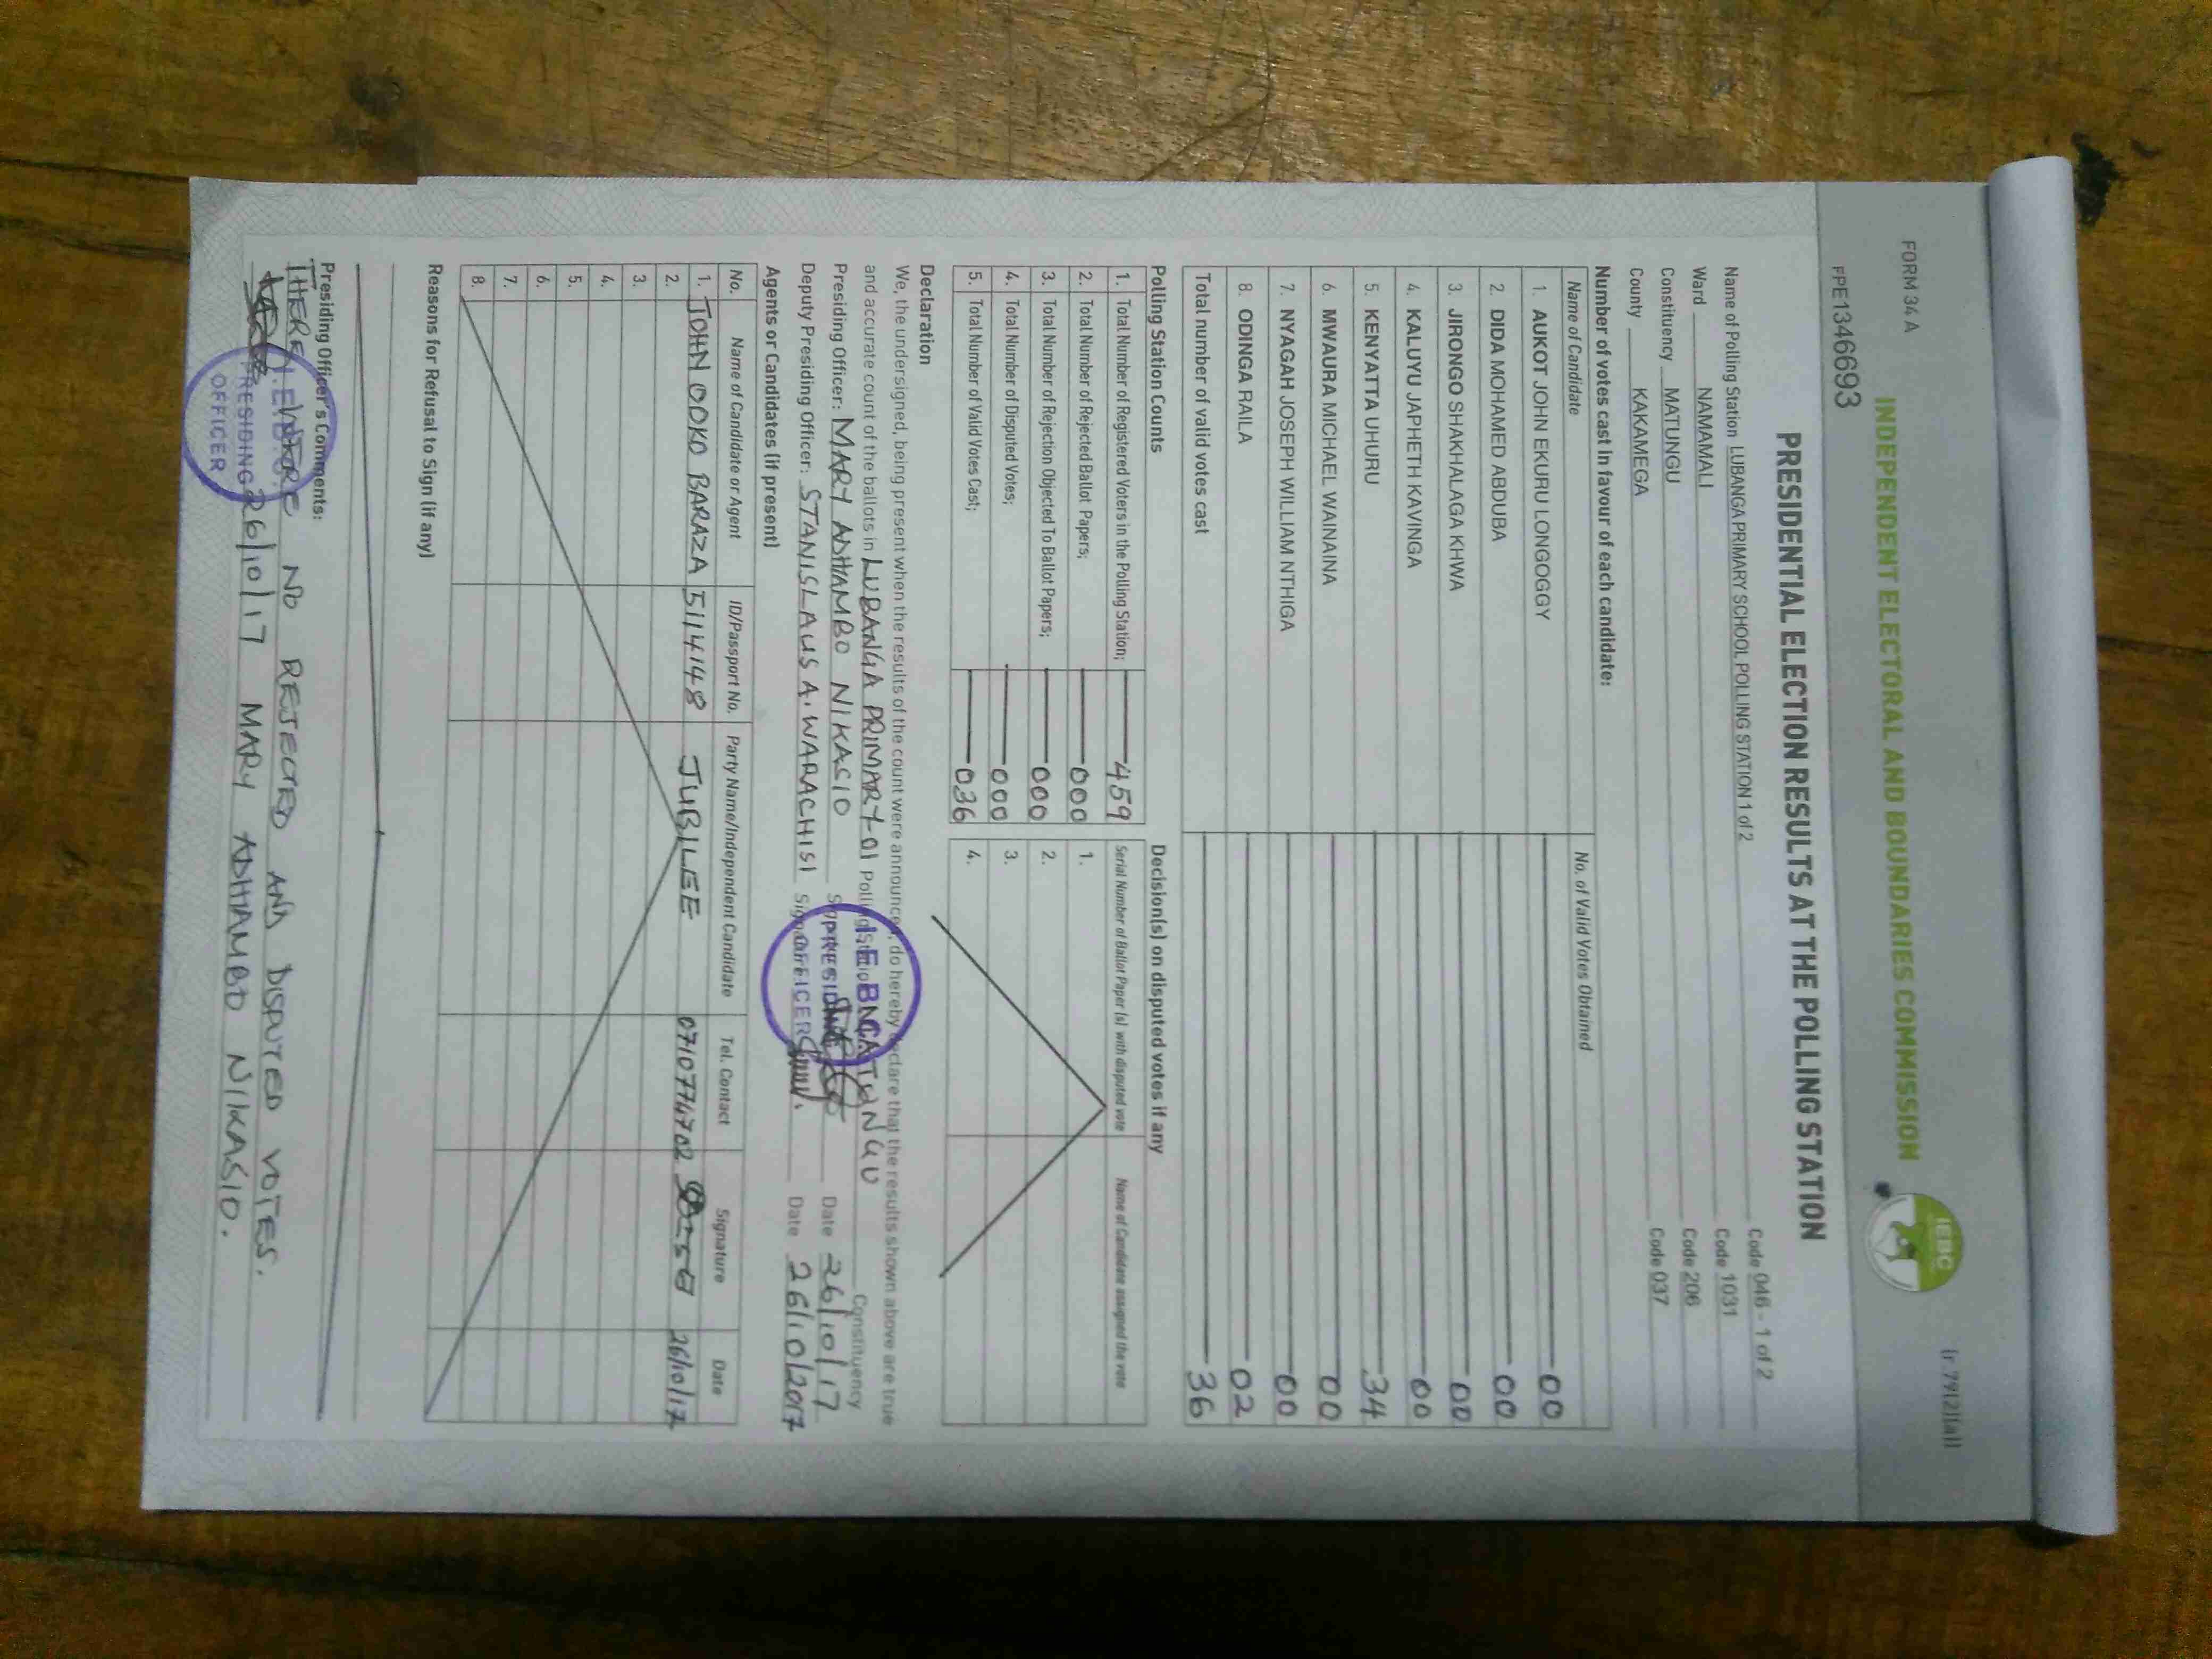 FORM 34 A
(r 79(2)(a))
INDEPENDENT ELECTORAL AND BOUNDARIES COMMISSION
IEBC
FPE1346693
PRESIDENTIAL ELECTION RESULTS AT THE POLLING STATION
Name of Polling Station LUBANGA PRIMARY SCHOOL POLLING STATION 1 of 2 Code 046 - 1 of 2
Ward NAMAMALI Code 1031
Constituency MATUNGU Code 206
County KAKAMEGA Code 037
Number of votes cast in favour of each candidate:
Name of Candidate No. of Valid Votes Obtained
1. AUKOT JOHN EKURU LONGOGGY 00
2. DIDA MOHAMED ABDUBA 00
3. JIRONGO SHAKHALAGA KHWA 00
4. KALUYU JAPHETH KAVINGA 00
5. KENYATTA UHURU 34
6. MWAURA MICHAEL WAINAINA 00
7. NYAGAH JOSEPH WILLIAM NTHIGA 00
8. ODINGA RAILA 02
Total number of valid votes cast 36
Polling Station Counts Decision(s) on disputed votes if any
Serial Number of Ballot Paper (s) with disputed vote Name of Candidate assigned the vote
1. Total Number of Registered Voters in the Polling Station; 459 1.
2. Total Number of Rejected Ballot Papers; 000 2.
3. Total Number of Rejection Objected To Ballot Papers; 000 3.
4. Total Number of Disputed Votes; 000 4.
5. Total Number of Valid Votes Cast; 036
Declaration
We, the undersigned, being present when the results of the count were announced, do hereby declare that the results shown above are true
and accurate count of the ballots in LUBANGA PRIMARY-01 Polling Station MATUNGU Constituency
Presiding Officer: MARY ADHIAMBO NIKASIO Signature Date 26/10/17
Deputy Presiding Officer: STANISLAUS A. WARACHISI Signature Date 26/10/2017
I.E.B.C
PRESIDING
OFFICER
Agents or Candidates (if present)
No. Name of Candidate or Agent ID/Passport No. Party Name/Independent Candidate Tel. Contact Signature Date
1. JOHN ODKO BARAZA 5114148 JUBILEE 0710774702 26/10/17
2.
3.
4.
5.
6.
7.
8.
Reasons for Refusal to Sign (if any)
Presiding Officer's Comments:
THERE WERE NO REJECTED AND DISPUTED VOTES.
26/10/17 MARY ADHIAMBO NIKASIO.
I.E.B.C
PRESIDING
OFFICER